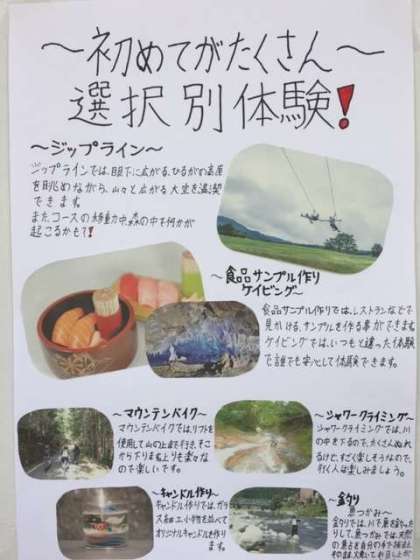 ～初めてがたくさん～
選択別体験!
～ジップライン～
ジップラインでは、眼下に広がる、ひるがの高原
を眺めながら、山々と広がる大空を満喫
できます。
また、コースの
森の中で何かが
起こるかも?!
～食品サンプル作り
ケイビング～
食品サンプル作りでは、レストランなどで
見かける、サンプルを作る事ができます。
ケイビングでは、いつもと違った体験
で誰でも安心して体験できます。
～マウンテンバイク～
マウンテンバイクでは、リフトを
使用して山の上まで行き、そこ
から下ります。上りも楽々な
ので楽しいです。
～シャワークライミング～
シャワークライミングでは、川
の中を下るので、たくさんぬれ
るけど、すごく楽しそうなので、
行く人は楽しみましょう。
～キャンドル作り～
キャンドル作りでは、ガラ
ス細工、小物を並べて
オリジナルキャンドルを作り
ます。
～釣り
魚つかみ～